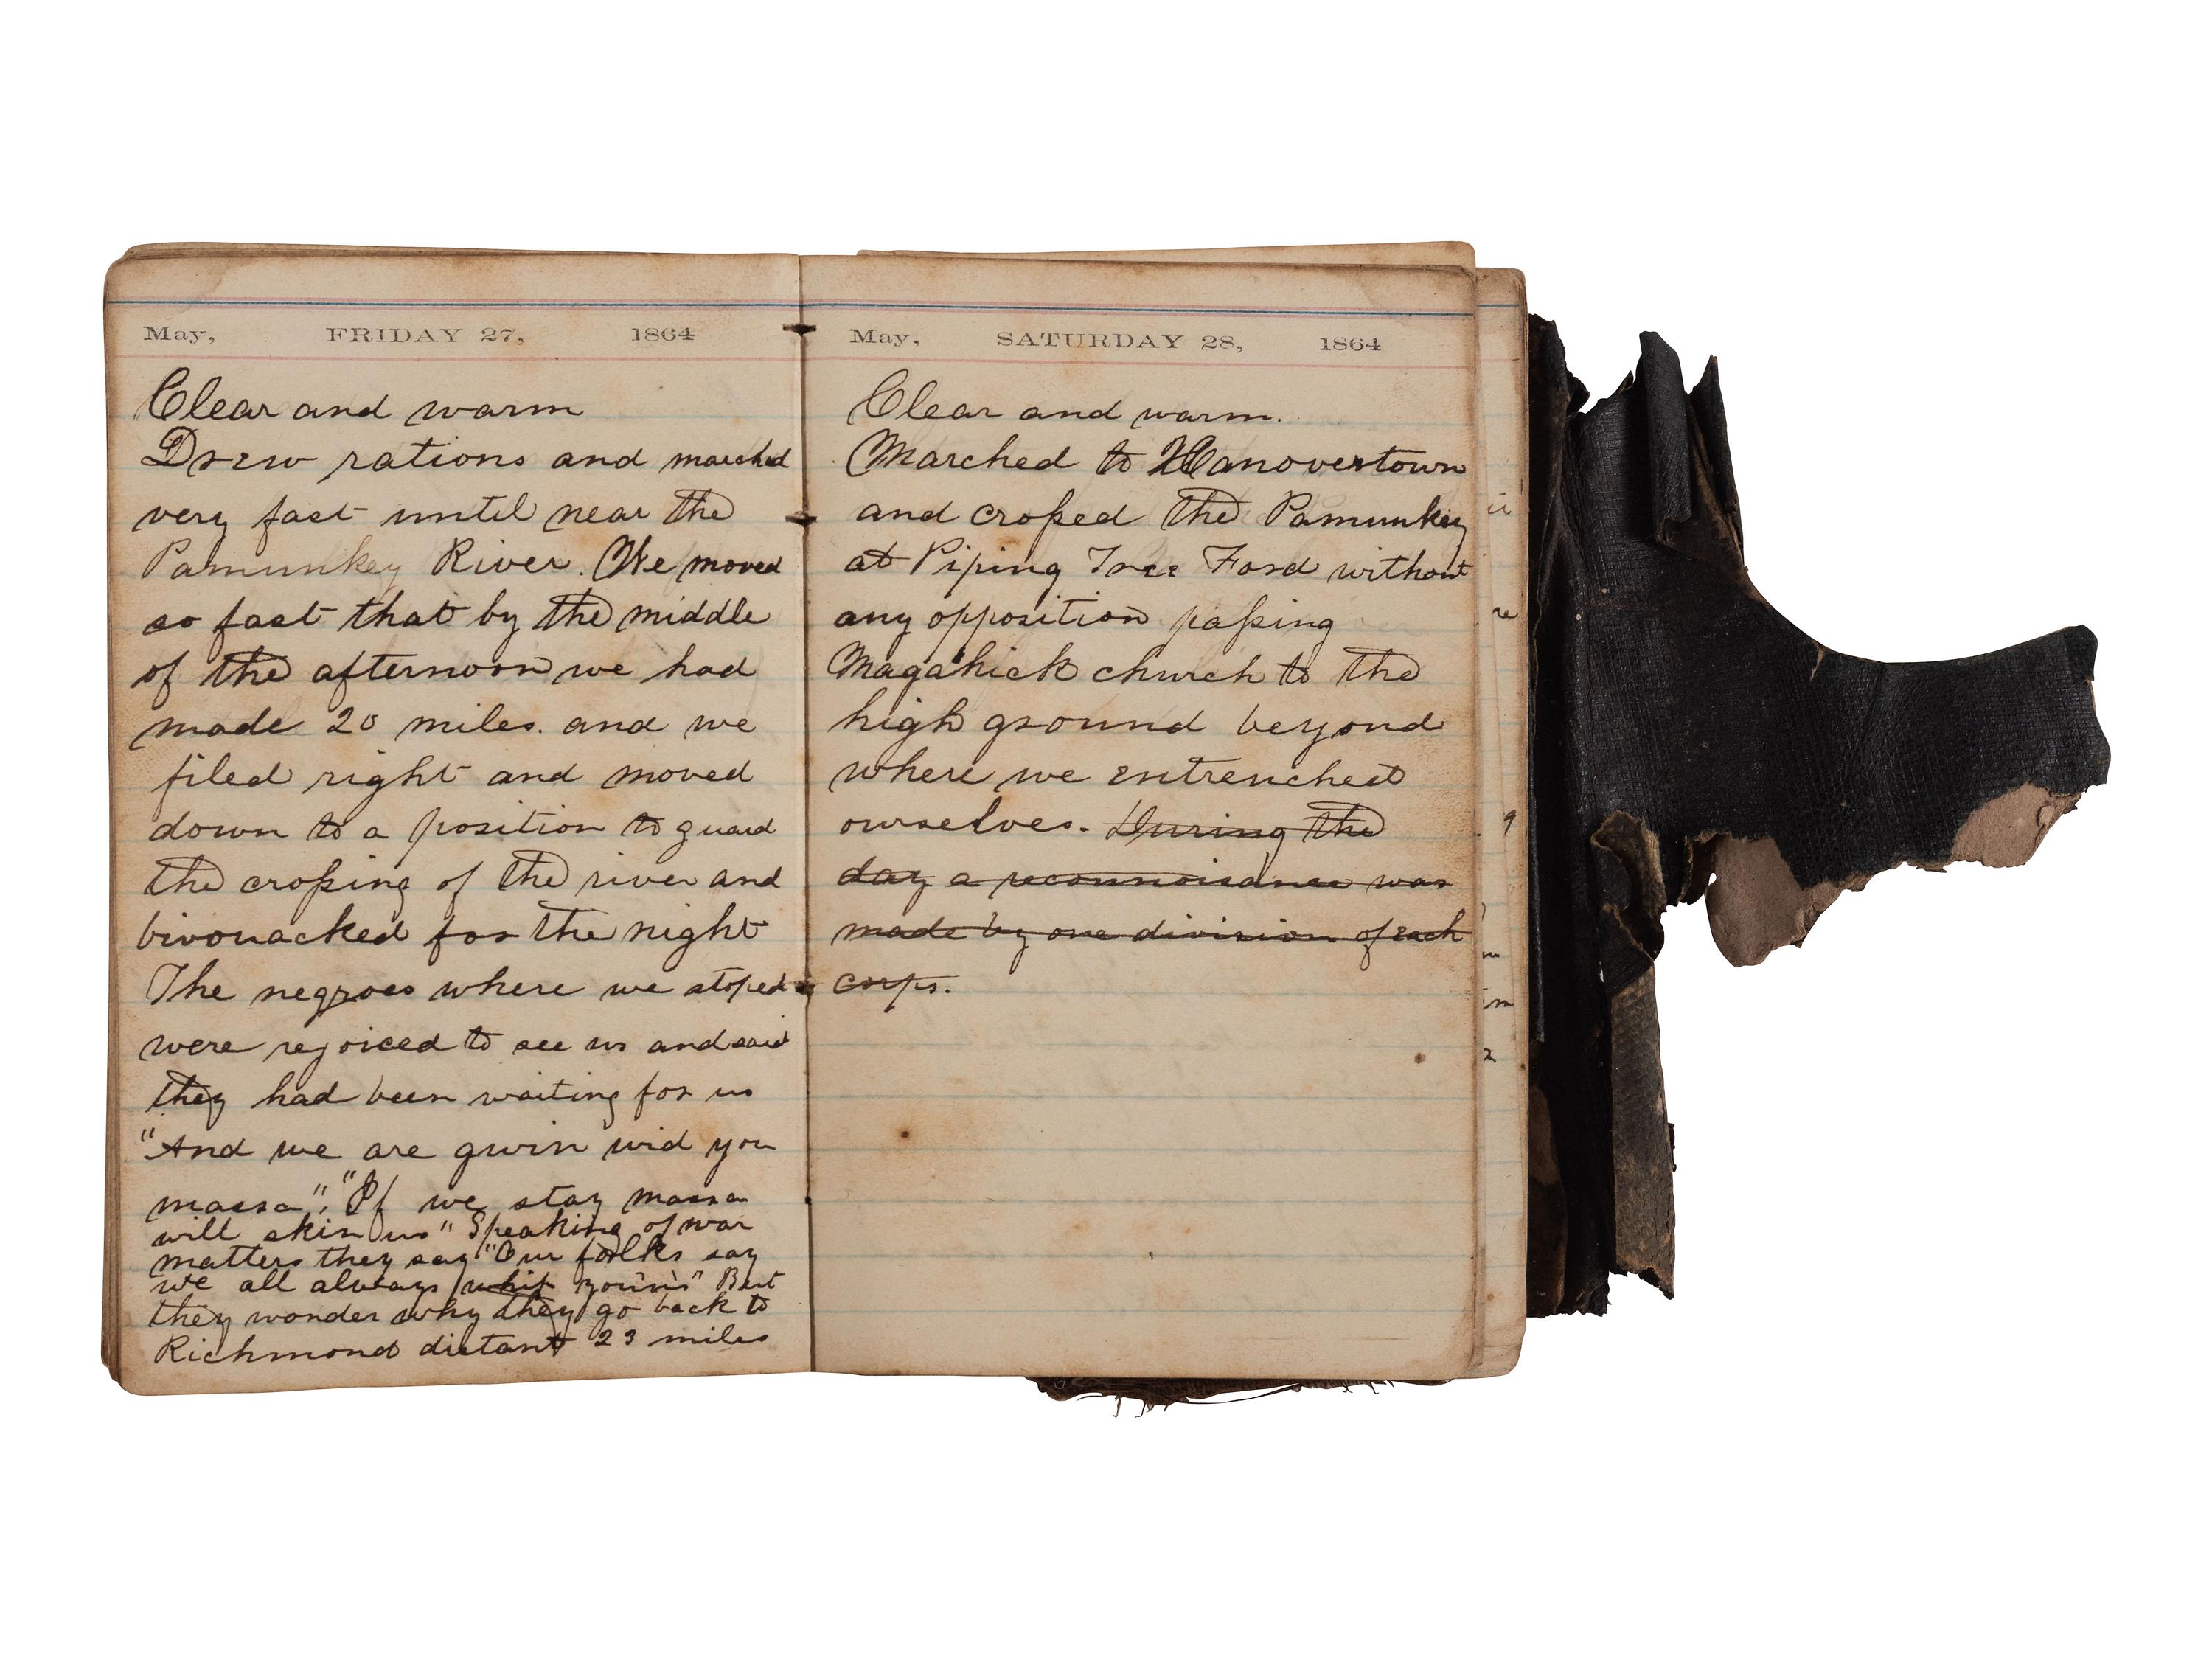 May, FRIDAY 27, 1864
Clear and warm
Drew rations and marched
very fast until near the
Pamunkey River. We moved
so fast that by the middle
of the afternoon we had
made 20 miles. and we
filed right and moved
down to a position to guard
the croſsing of the river and
bivouacked for the night
The negroes where we stoped
were rejoiced to see us and said
they had been waiting for us
"And we are gwin wid you
massa". "If we stay massa
will skin us" Speaking of war
matters they say "Our folks say
we all always whip you'ns" But
they wonder why they go back to
Richmond distant 23 miles
May, SATURDAY 28, 1864
Clear and warm.
Marched to Hanovertown
and croſsed the Pamunkey
at Piping Tree Ford without
any opposition paſsing
Magahick church to the
high ground beyond
where we entrenched
ourselves. During the
day a reconnoisance was
made by one division of each
corps.